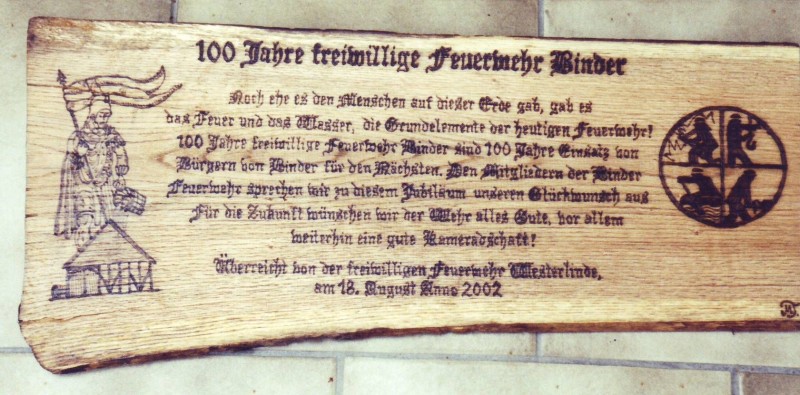 100 Jahre freiwillige Feuerwehr Binder
Noch ehe es den Menschen auf dieser Erde gab, gab es
das Feuer und das Wasser, die Grundelemente der heutigen Feuerwehr!
100 Jahre freiwillige Feuerwehr Binder sind 100 Jahre Einsatz von
Bürgern von Binder für den Nächsten. Den Mitgliedern der Binder
Feuerwehr sprechen wir zu diesem Jubiläum unseren Glückwunsch aus
Für die Zukunft wünschen wir der Wehr alles Gute, vor allem
weiterhin eine gute Kameradschaft!
Überreicht von der freiwilligen Feuerwehr Westerlinde,
am 18. August Anno 2002